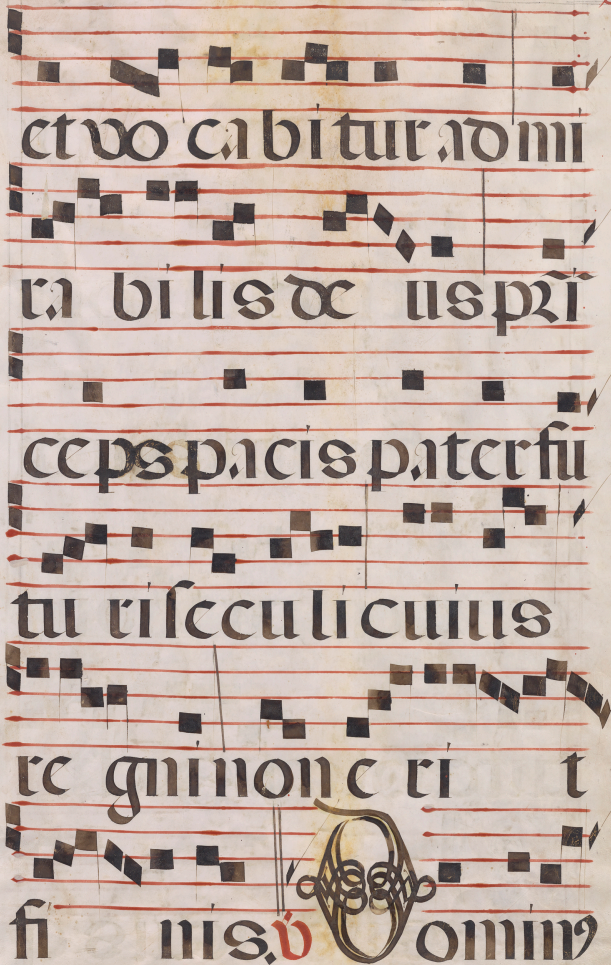 et vo cabitur admi
ra bilis de us prĩ
ceps pacis pater fu
tu ri seculi cuius
re gni non e ri t
fi nis. v̈ Dominꝰ